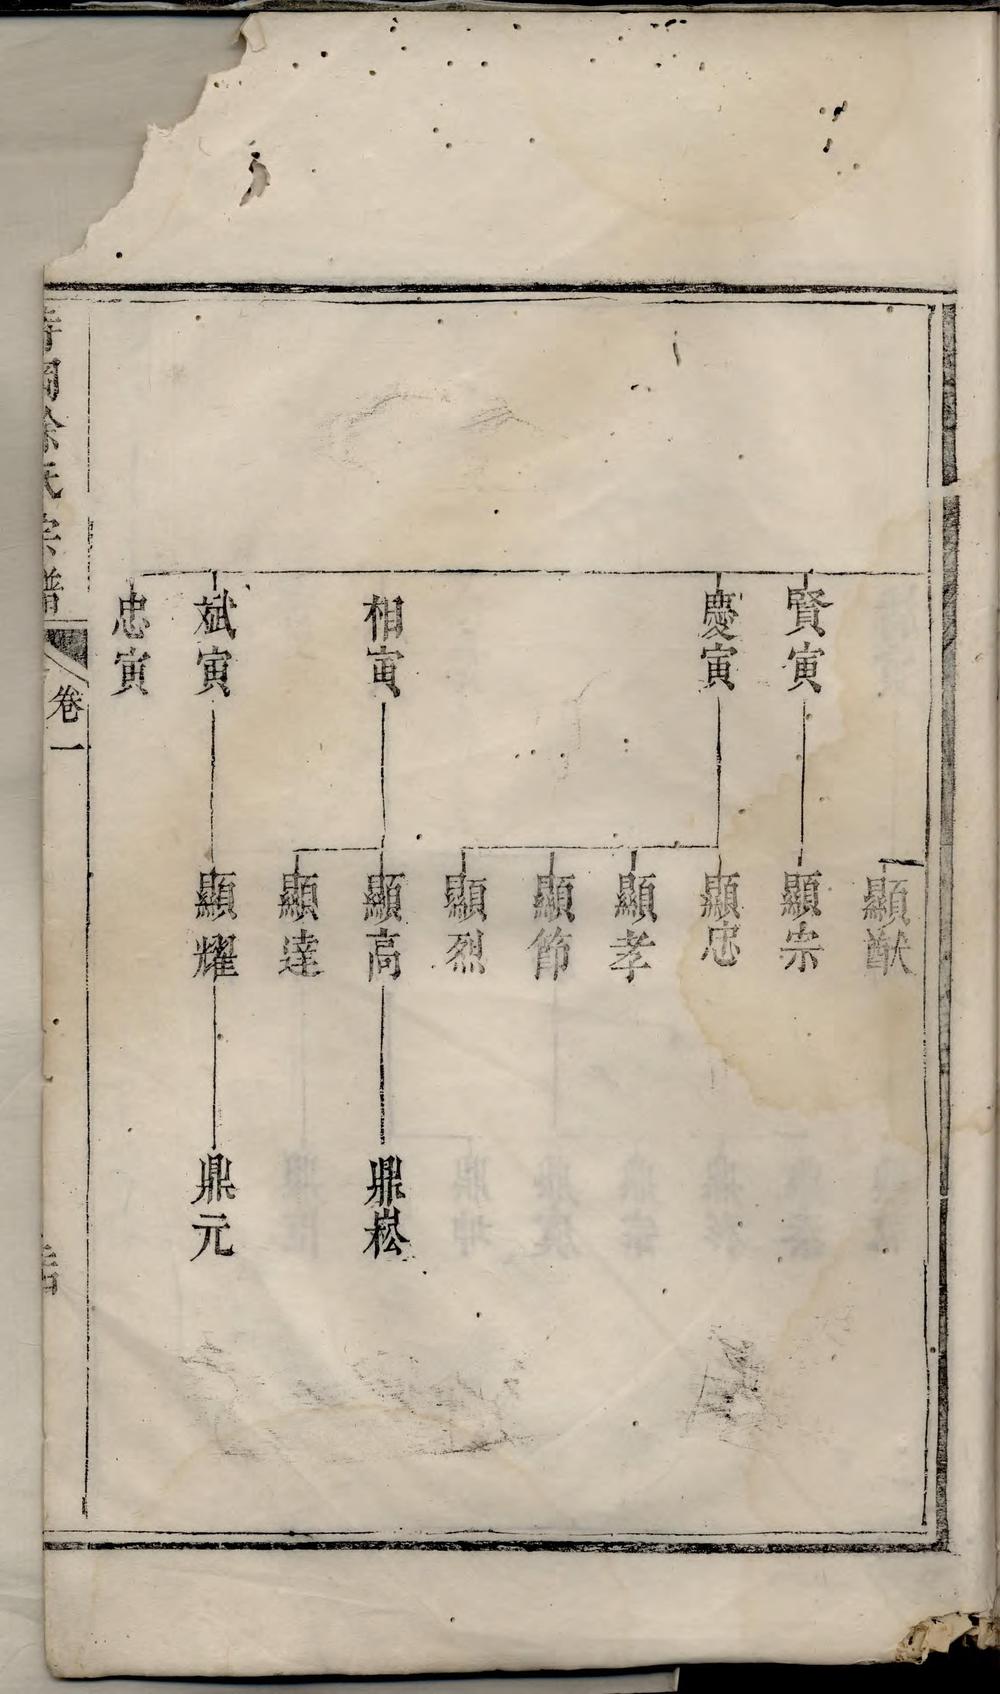 賢寅
慶寅
相寅
斌寅
忠寅
顯猷
顯宗
顯忠
顯孝
顯節
顯烈
顯高
顯達
顯耀
鼎崧
鼎元
徐氏宗譜
卷一